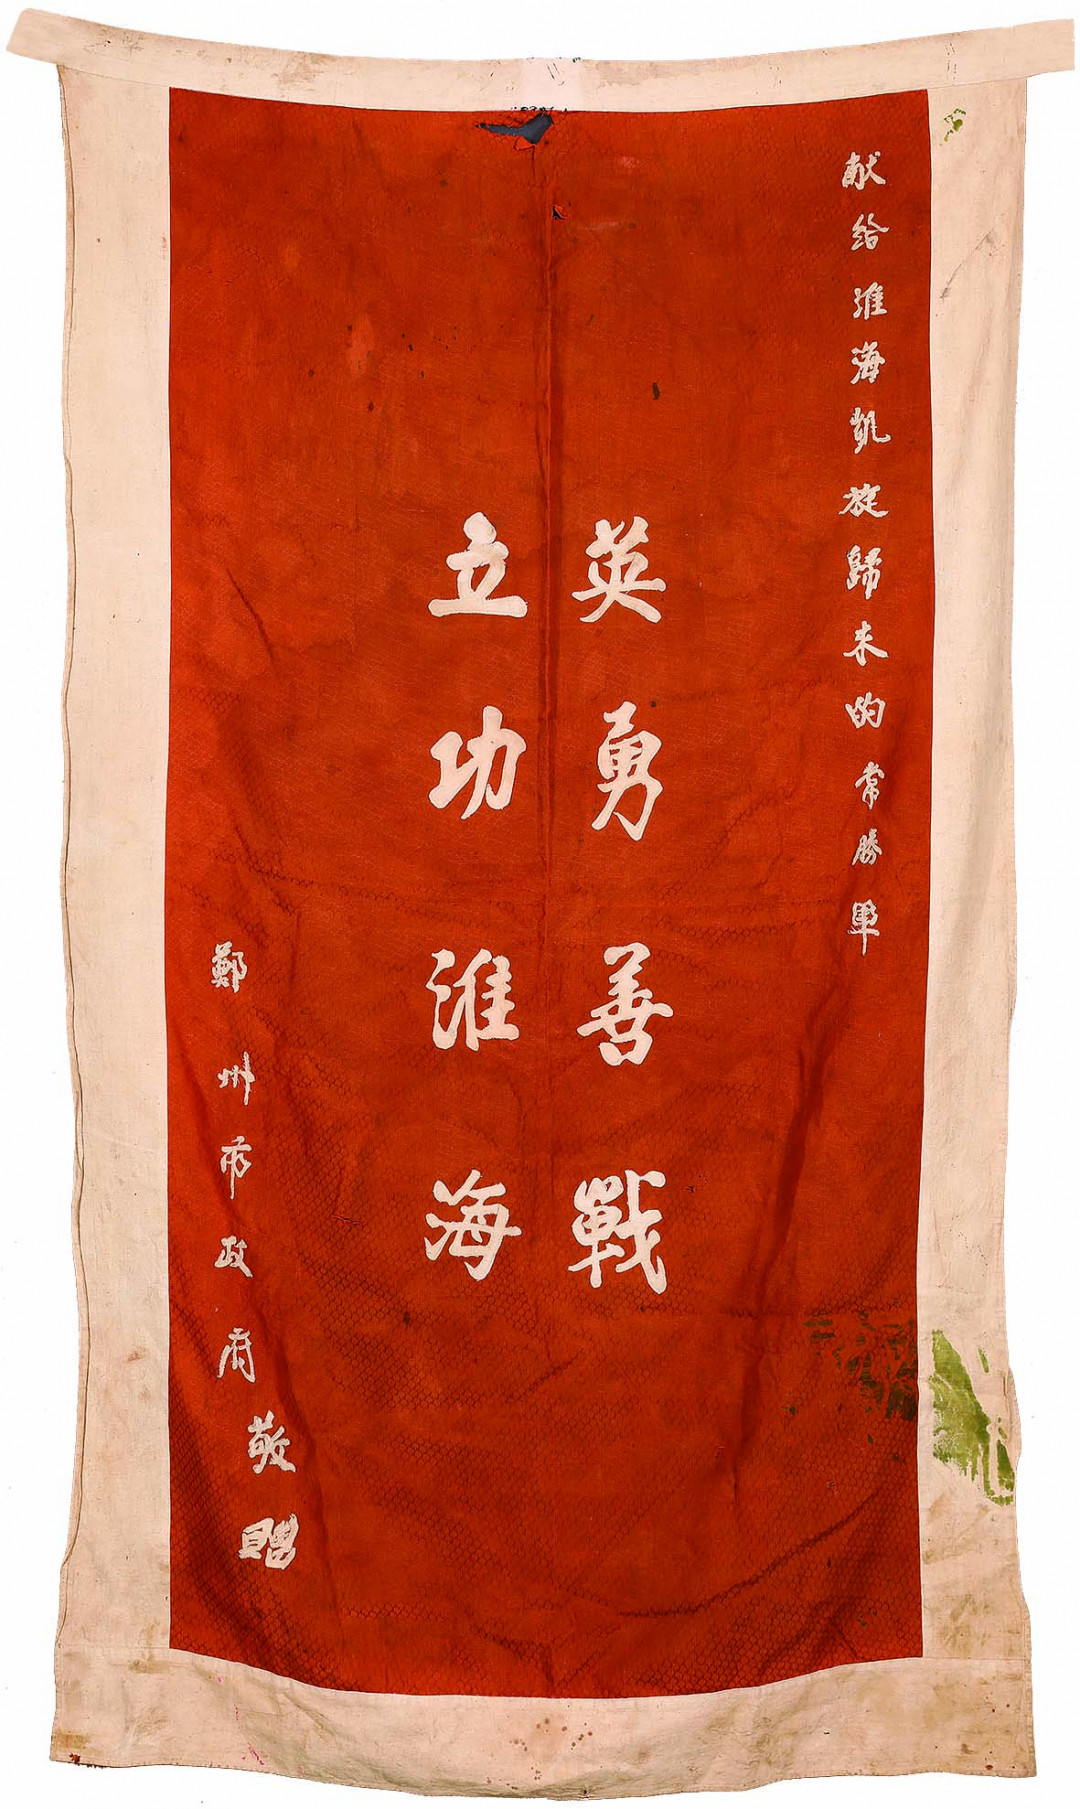 献给淮海凯旋歸来的常勝軍
英勇善戰
立功淮海
鄭州市政府敬贈